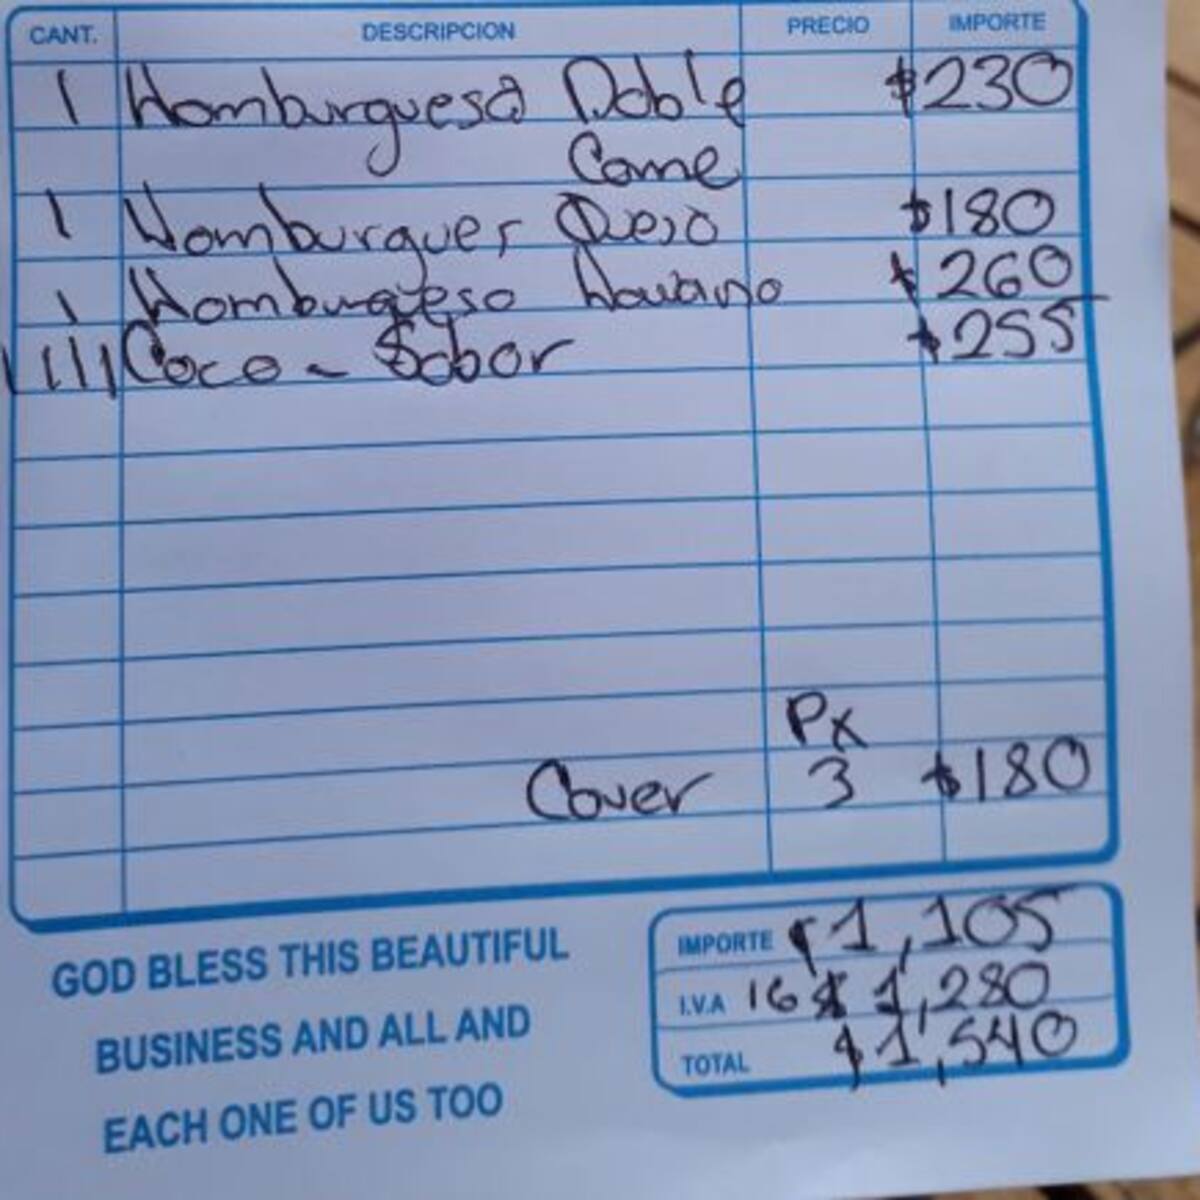 CANT. DESCRIPCION PRECIO IMPORTE
1 Hamburguesa Doble $230
Carne
1 Hamburguer Queso $180
1 Hamburguesa Hawaiano $260
IIIII Coco - Sabor $255
Px
Cover 3 $180
GOD BLESS THIS BEAUTIFUL
BUSINESS AND ALL AND
EACH ONE OF US TOO
IMPORTE $1,105
I.V.A 16% $1,280
TOTAL $1,540